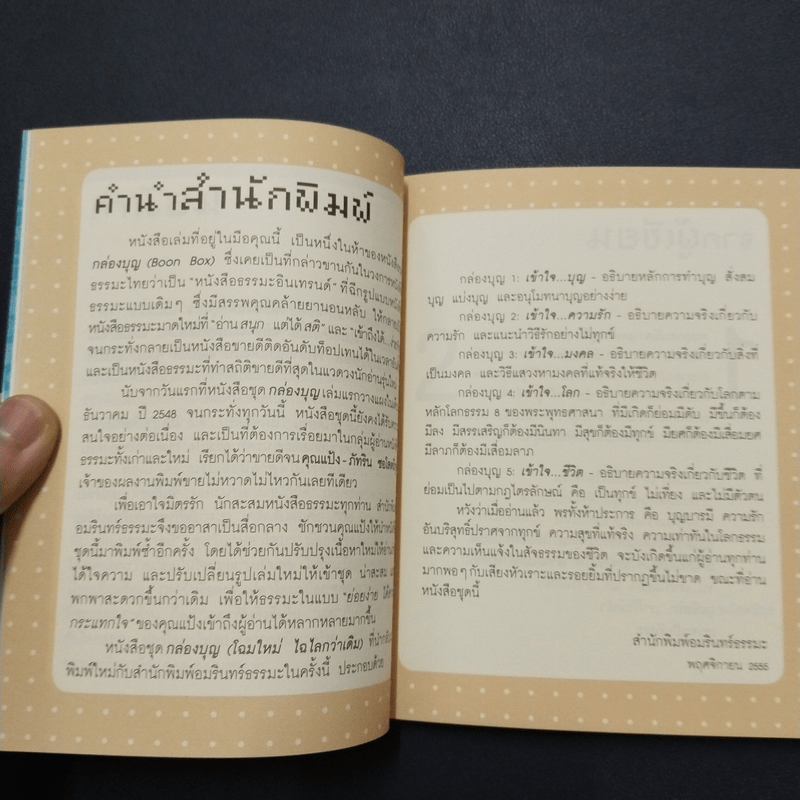 คำนำสำนักพิมพ์
หนังสือเล่มที่อยู่ในมือคุณนี้ เป็นหนึ่งในห้าของหนังสือชุด
กล่องบุญ (Boon Box) ซึ่งเคยเป็นที่กล่าวขานกันในวงการหนังสือ
ธรรมะไทยว่าเป็น "หนังสือธรรมะอินเทรนด์" ที่ฉีกรูปแบบหนังสือ
ธรรมะแบบเดิมๆ ซึ่งมีสรรพคุณคล้ายยานอนหลับ ให้กลายเป็น
หนังสือธรรมะมาดใหม่ที่ "อ่านสนุก แต่ได้สติ" และ "เข้าถึงได้...ง่าย
จนกระทั่งกลายเป็นหนังสือขายดีติดอันดับท็อปเทนได้ในเวลา
และเป็นหนังสือธรรมะที่ทำสถิติขายดีที่สุดในแวดวงนักอ่านรุ่นใหม่
นับจากวันแรกที่หนังสือชุด กล่องบุญ เล่มแรกวางแผงใน
ธันวาคม ปี 2548 จนกระทั่งทุกวันนี้ หนังสือชุดนี้ยังคงได้รับ
สนใจอย่างต่อเนื่อง และเป็นที่ต้องการเรื่อยมาในกลุ่มผู้อ่านหนังสือ
ธรรมะทั้งเก่าและใหม่ เรียกได้ว่าขายดีจน คุณแป้ง-ภัทริน
เจ้าของผลงานพิมพ์ขายไม่หวาดไม่ไหวกันเลยทีเดียว
เพื่อเอาใจมิตรรัก นักสะสมหนังสือธรรมะทุกท่าน สำนักพิมพ์
อมรินทร์ธรรมะจึงขออาสาเป็นสื่อกลาง ชักชวนคุณแป้งให้นำหนังสือ
ชุดนี้มาพิมพ์ซ้ำอีกครั้ง โดยได้ช่วยกันปรับปรุงเนื้อหาใหม่ให้อ่าน
ได้ใจความ และปรับเปลี่ยนรูปเล่มใหม่ให้เข้าชุด น่าสะสม
พกพาสะดวกขึ้นกว่าเดิม เพื่อให้ธรรมะในแบบ "ย่อยง่าย ได้
กระแทกใจ" ของคุณแป้งเข้าถึงผู้อ่านได้หลากหลายมากขึ้น
หนังสือชุด กล่องบุญ (โฉมใหม่ ไฉไลกว่าเดิม) ที่นำกลับมา
พิมพ์ใหม่กับสำนักพิมพ์อมรินทร์ธรรมะในครั้งนี้ ประกอบด้วย
กล่องบุญ 1: เข้าใจ...บุญ - อธิบายหลักการทำบุญ สั่งสม
บุญ แบ่งบุญ และอนุโมทนาบุญอย่างง่าย
กล่องบุญ 2: เข้าใจ...ความรัก - อธิบายความจริงเกี่ยวกับ
ความรัก และแนะนำวิธีรักอย่างไม่ทุกข์
กล่องบุญ 3: เข้าใจ...มงคล - อธิบายความจริงเกี่ยวกับสิ่งที่
เป็นมงคล และวิธีแสวงหามงคลที่แท้จริงให้ชีวิต
กล่องบุญ 4: เข้าใจ...โลก - อธิบายความจริงเกี่ยวกับโลกตาม
หลักโลกธรรม 8 ของพระพุทธศาสนา ที่มีเกิดก็ย่อมมีดับ มีขึ้นก็ต้อง
มีลง มีสรรเสริญก็ต้องมีนินทา มีสุขก็ต้องมีทุกข์ มียศก็ต้องมีเสื่อมยศ
มีลาภก็ต้องมีเสื่อมลาภ
กล่องบุญ 5: เข้าใจ...ชีวิต - อธิบายความจริงเกี่ยวกับชีวิต ที่
ย่อมเป็นไปตามกฎไตรลักษณ์ คือ เป็นทุกข์ ไม่เที่ยง และไม่มีตัวตน
หวังว่าเมื่ออ่านแล้ว พรทั้งห้าประการ คือ บุญบารมี ความรัก
อันบริสุทธิ์ปราศจากทุกข์ ความสุขที่แท้จริง ความเท่าทันในโลกธรรม
และความเห็นแจ้งในสัจธรรมของชีวิต จะบังเกิดขึ้นแก่ผู้อ่านทุกท่าน
มากพอๆ กับเสียงหัวเราะและรอยยิ้มที่ปรากฏขึ้นไม่ขาด ขณะที่อ่าน
หนังสือชุดนี้
สำนักพิมพ์อมรินทร์ธรรมะ
พฤศจิกายน 2555